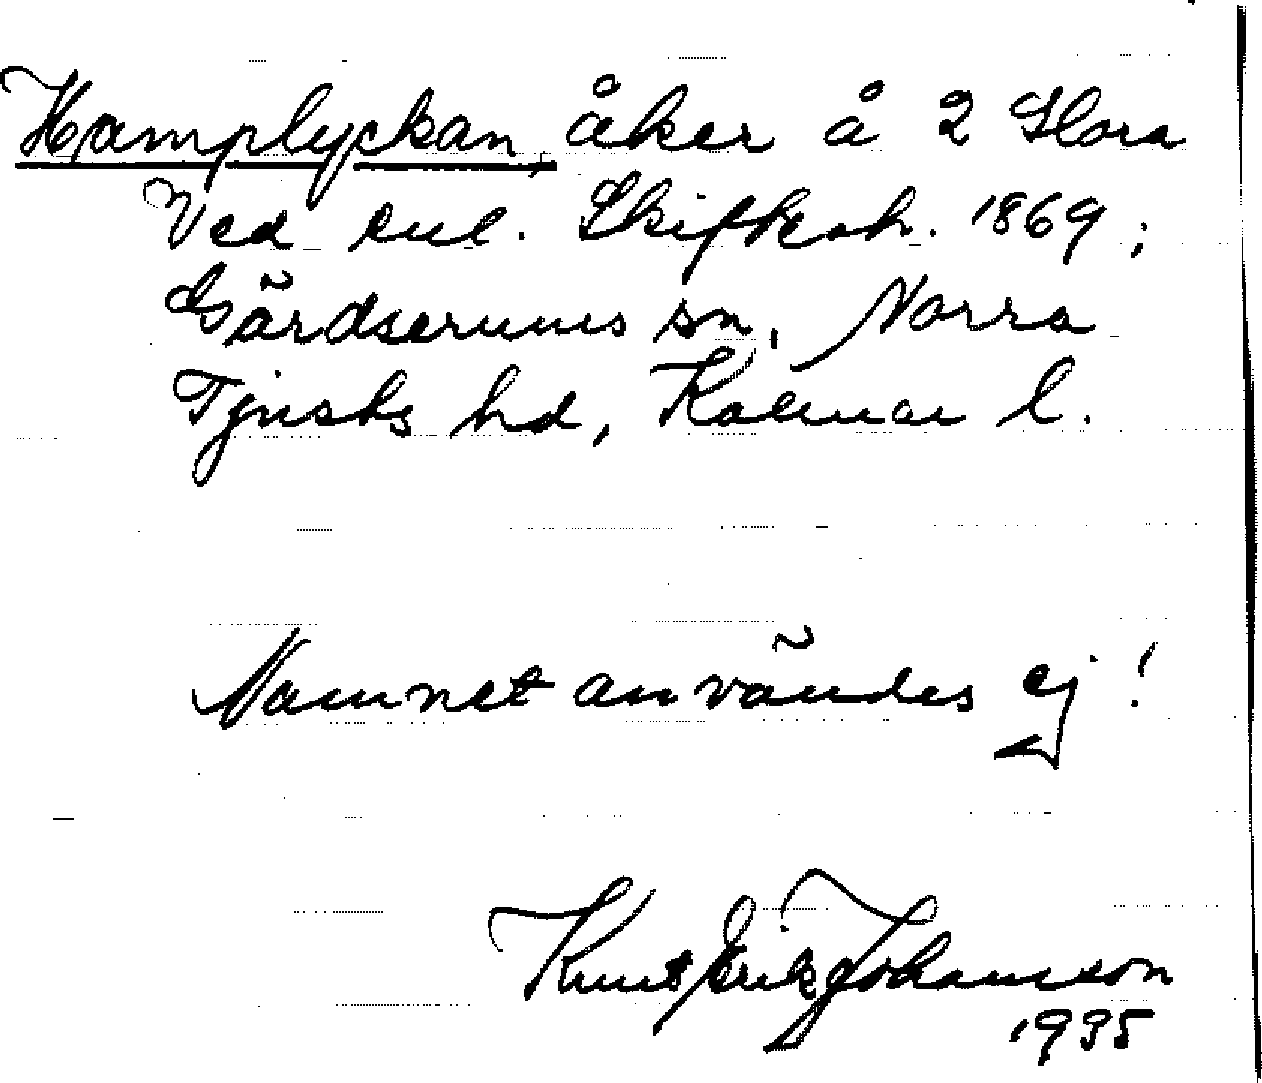 Hamplyckan, åker å 2 Stora
Ved enl. Skifteak. 1869;
Gärdserums sn, Norra
Tjusts hd, Kalmar l.
Namnet användes ej!
Knut Erik Johansson
1935